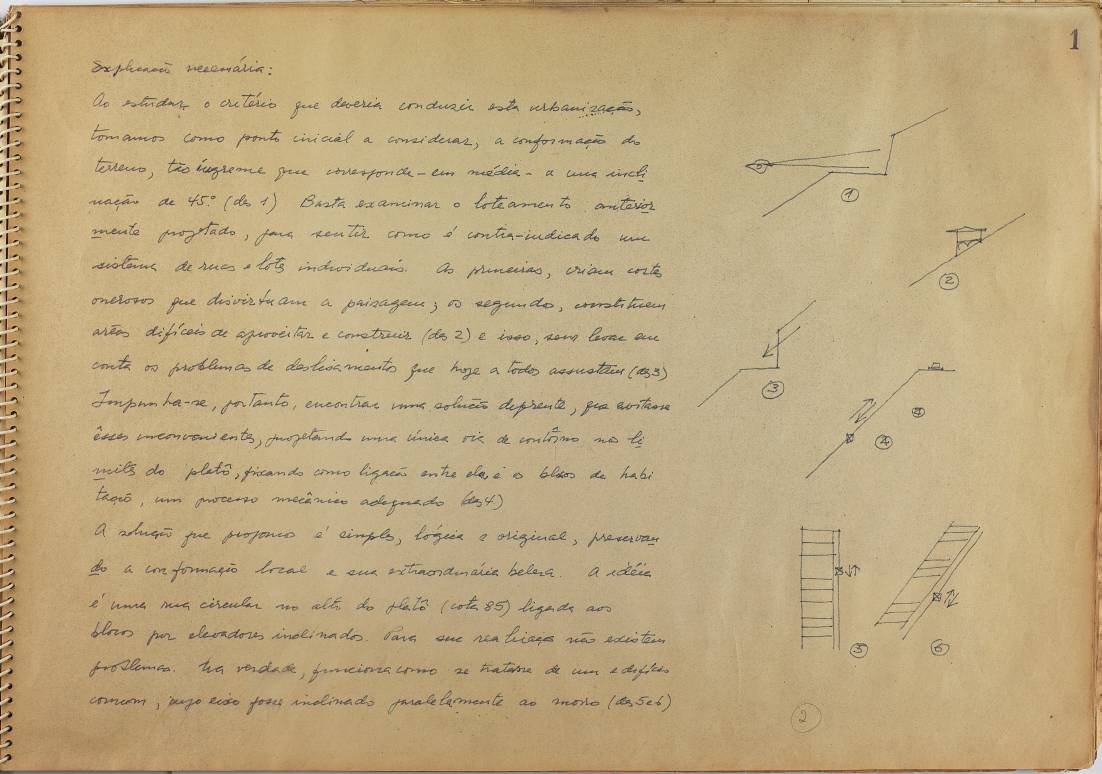 1
Explicação necessária:
Ao estudar o critério que deveria conduzir esta urbanização,
tomamos como ponto inicial a considerar, a conformação do
terreno, tão íngreme que corresponde - em média - a uma incli
nação de 45.º (des 1) Basta examinar o loteamento anterior
mente projetado, para sentir como é contra-indicado um
sistema de ruas e lotes individuais. As primeiras, criam cortes
onerosos que disvirtuam a paisagem; os segundos, constituem
areas difíceis de aproveitar e construir (des 2) e isso, sem levar em
conta os problemas de deslisamentos que hoje a todos assustam (des 3)
Impunha-se, portanto, encontrar uma solução diferente, que evitasse
êsses inconvenientes, projetando uma única via de contôrno no li
mite do platô, fixando como ligação entre ela e o bloco de habi
tação, um processo mecânico adequado (des 4)
A solução que propomos é simples, lógica e original, preservan
do a conformação local e sua extraordinária beleza. A idéia
é uma rua circular no alto do platô (cota 85) ligada aos
blocos por elevadores inclinados. Para sua realização não existem
problemas. Na verdade, funciona como se tratasse de um edifício
comum, cujo eixo fosse inclinado paralelamente ao morro (des 5 e 6)
1
2
3
4
4
5
6
2